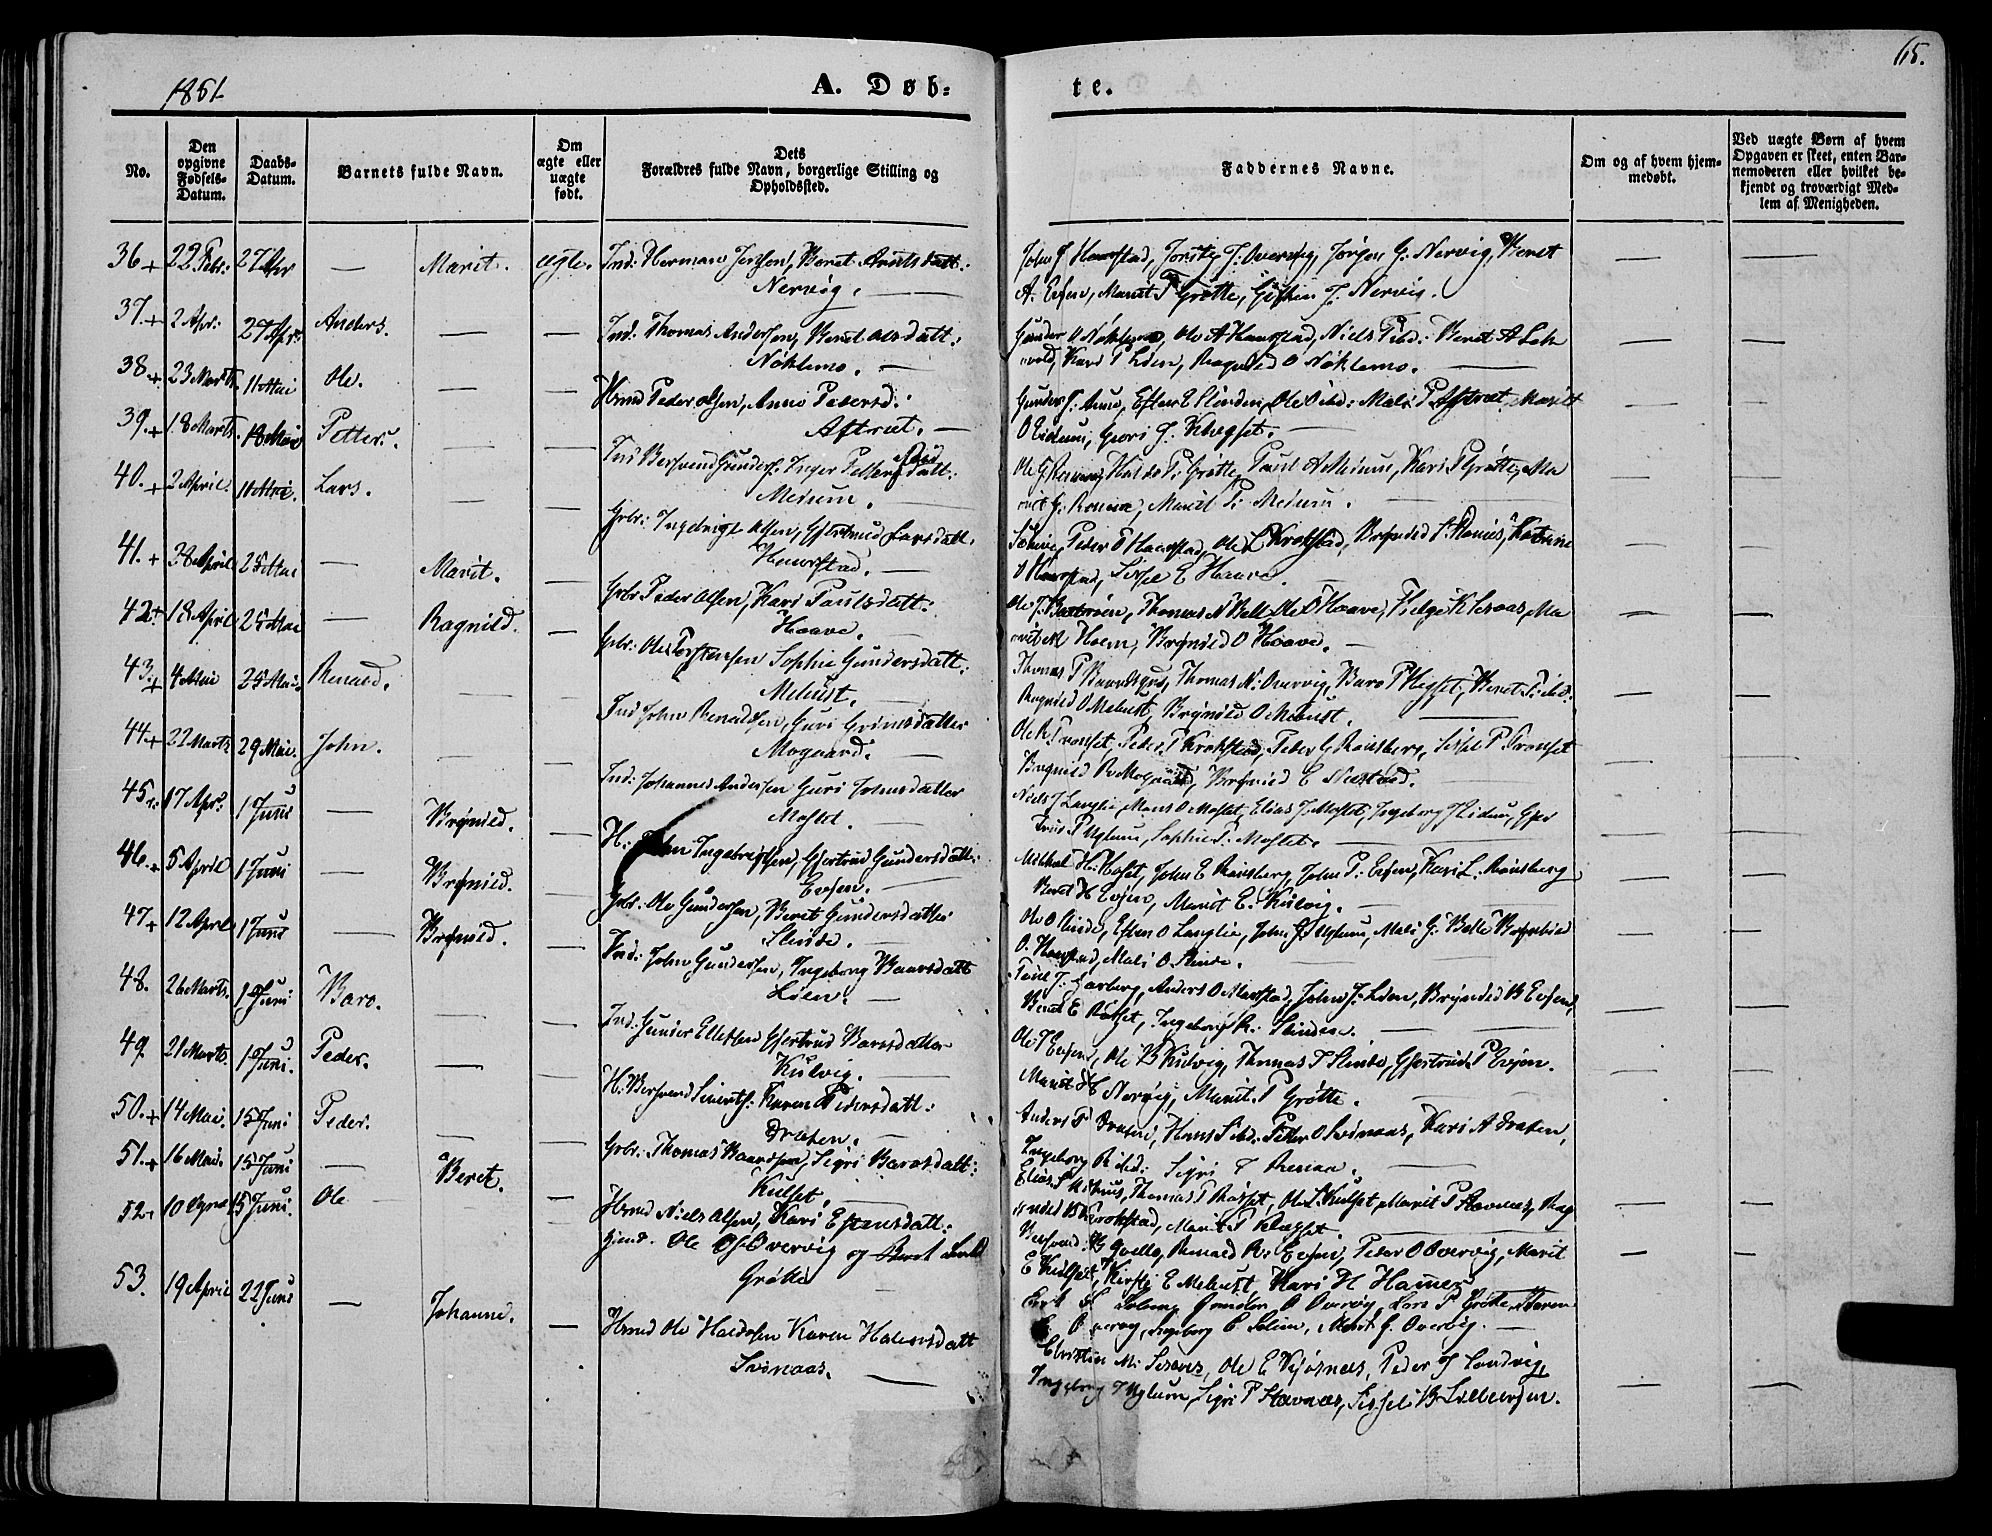 1851
A. Døb-
te.
65.
No.
Den opgivne Fødsels-Datum.
Daabs-Datum.
Barnets fulde Navn.
Om ægte eller uægte født.
Dets Forældres fulde Navn, borgerlige Stilling og Opholdsted.
Faddernes Navne.
Om og af hvem hjem-medøbt.
Ved uægte Børn af hvem Opgaven er skeet, enten Bar-nemoderen eller hvilket be-kjendt og troværdigt Med-lem af Menigheden.
36+ 22 Febr: 27 Apr — Marit. ægte. Ind: Herman Jensen, Beret Arntsdatt:
Nervig. —
John J Haarstad, J. Overvig, Jørgen G: Nervig, Beret
A. Evjen, Marit T Grøtte, J. Nervig.
37+ 2 Apr: 27 Apr: Anders. — — Ind: Thomas Andersen, Beret Olsdatt:
Nøklemo. —
Gunder O Nøklemo, Ole A Haarstad, Niels Beret A
Kari P Lien, Ragnild O Nøklemo. —
38+ 23 Marts 11 Mai Ole. — — Hmd Peder Olsen, Anne Pedersd:
Aftræt. —
Gunder J: Aune, Esten E Slinden, Ole Mali P Aftræt, Marit
O Eidum, J: Klegset. —
39+ 18 Marts 18 Mai Petter. — Ind Bersvend Gunders: Inger Pettersdatt:
Meium. —
Haldo P: Grøtte, Paul A Meium, Kari P Grøtte, Ma
rit G. Marit P: Meium. —
40+ 2 April. 11 Mai. Lars. — — Gbr: Ingebrigt Olsen, Gjertrud Larsdatt.
Haarstad. —
Peder O Haarstad, Ole L Krokstad, Brynild
O Haarstad, Sissel E Haave. —
41+ 28 April 25 Mai — Marit. — Gbr: Peder Olsen, Kari Paulsdatt:
Haave. —
Thomas N Belle, Ole O Haave, Helge Ma
rit Hoem, Brynild O Haave. —
42+ 18 April 25 Mai — Ragnild. — Gbr: Ole Torstensen Sophie Gundersdatt:
Mebust. —
Thomas P Thomas N: Overvig, Baro P Klegset, Beret
Ragnild O Mebust, Brynild O Mebust. —
43+ 4 Mai 25 Mai. Renald. — — Ind John Renaldsen, Guri Grimsdatter
Mogaard. —
Ole R. Tronset, Peder P Krokstad, Peder G Rønsberg, Sissel P Tronset
Ragnild R Mogaard, Brynild E Nestaad. —
44+ 22 Marts 29 Mai. John. — — Ind: Johannes Andersen Guri Johnsdatter
Moslet. —
Niels J Langlie, Mons O Moslet, Elias J. Moslet, Ingeborg J Eidum, Gjer
trud P Uglum, Sophie P. Moslet. —
45+ 17 Apr: 1 Juni — Brynild. — H: John Ingebrigtsen, Gjertrud Gundersdatt:
Evjen. —
Mikkal H: Hoset, John E Rønsberg, John P: Evjen, Kari L. Rønsberg
Beret H Evjen, Marit E. Kulvig. —
46+ 5 April 1 Juni — Brynild. — Gbr: Ole Gundersen, Beret Gundersdatter
Slinde. —
Ole O Slinde, Esten O Langlie, John G Uglum, Mali G: Belle Brynhild
O. Haarstad, Mali O Slinde. —
47+ 12 April 1 Juni — Brynild. — Ind: John Gundersen, Ingeborg Baarsdatt
Lien. —
Paul J. Garberg, Anders O Marstad, John J. Lien, Brynild B Evjen,
Beret E Røsset, Ingeborg R. Slinde. —
48. 26 Marts. 1 Juni Baro. — — Ind: Gunder Ellefsen Gjertrud Barosdatter
Kulvig. —
Ole T Evjen, Ole B Kulvig, Thomas T Slinde, Gjertrud P Evjen.
Marit H Nervig, Marit P Grøtte. —
49. 21 Marts. 1 Juni. Peder. — H: Bersvend Siverts: Karen Pedersdatt:
Draxten. —
Anders P Draxten, Hans Peder O Svinaas, Kari A Draxten,
Ingeborg Sigri T —
50+ 14 Mai. 15 Juni Peder. — — Gbr: Thomas Baardsen, Sigri Barosdatt:
Kulset. —
Elias S Thomas T Røsset, Ole L Kulset, Marit P Stavnæs, Rag
nild B Krokstad, Marit P Klegset. —
51+ 16 Mai. 15 Juni — Beret. — Hmd Niels Olsen, Kari Estensdatt:
Bersvend B Renald R: Evjen, Peder O Overvig, Marit
E Kulset, Kirsti E Mebust, Kari H Hammer
52+ 10 15 Juni. Ole — Ole Ols: Overvig og Beret
Grøtte —
Solberg Gunder O Overvig, Lars P Grøtte, Karen
E. Overvig, Ingeborg P Selium, Marit G. Overvig. —
53. 19 April 22 Juni — Johanne. — Hmd Ole Haldosen Karen Halvorsdatt
Svinaas. —
Christen M: Ole E Kjøsnæs, Peder J Sandvig,
Ingeborg T Uglum, Sigri P Stavnæs, Sissel B Lillevjen.